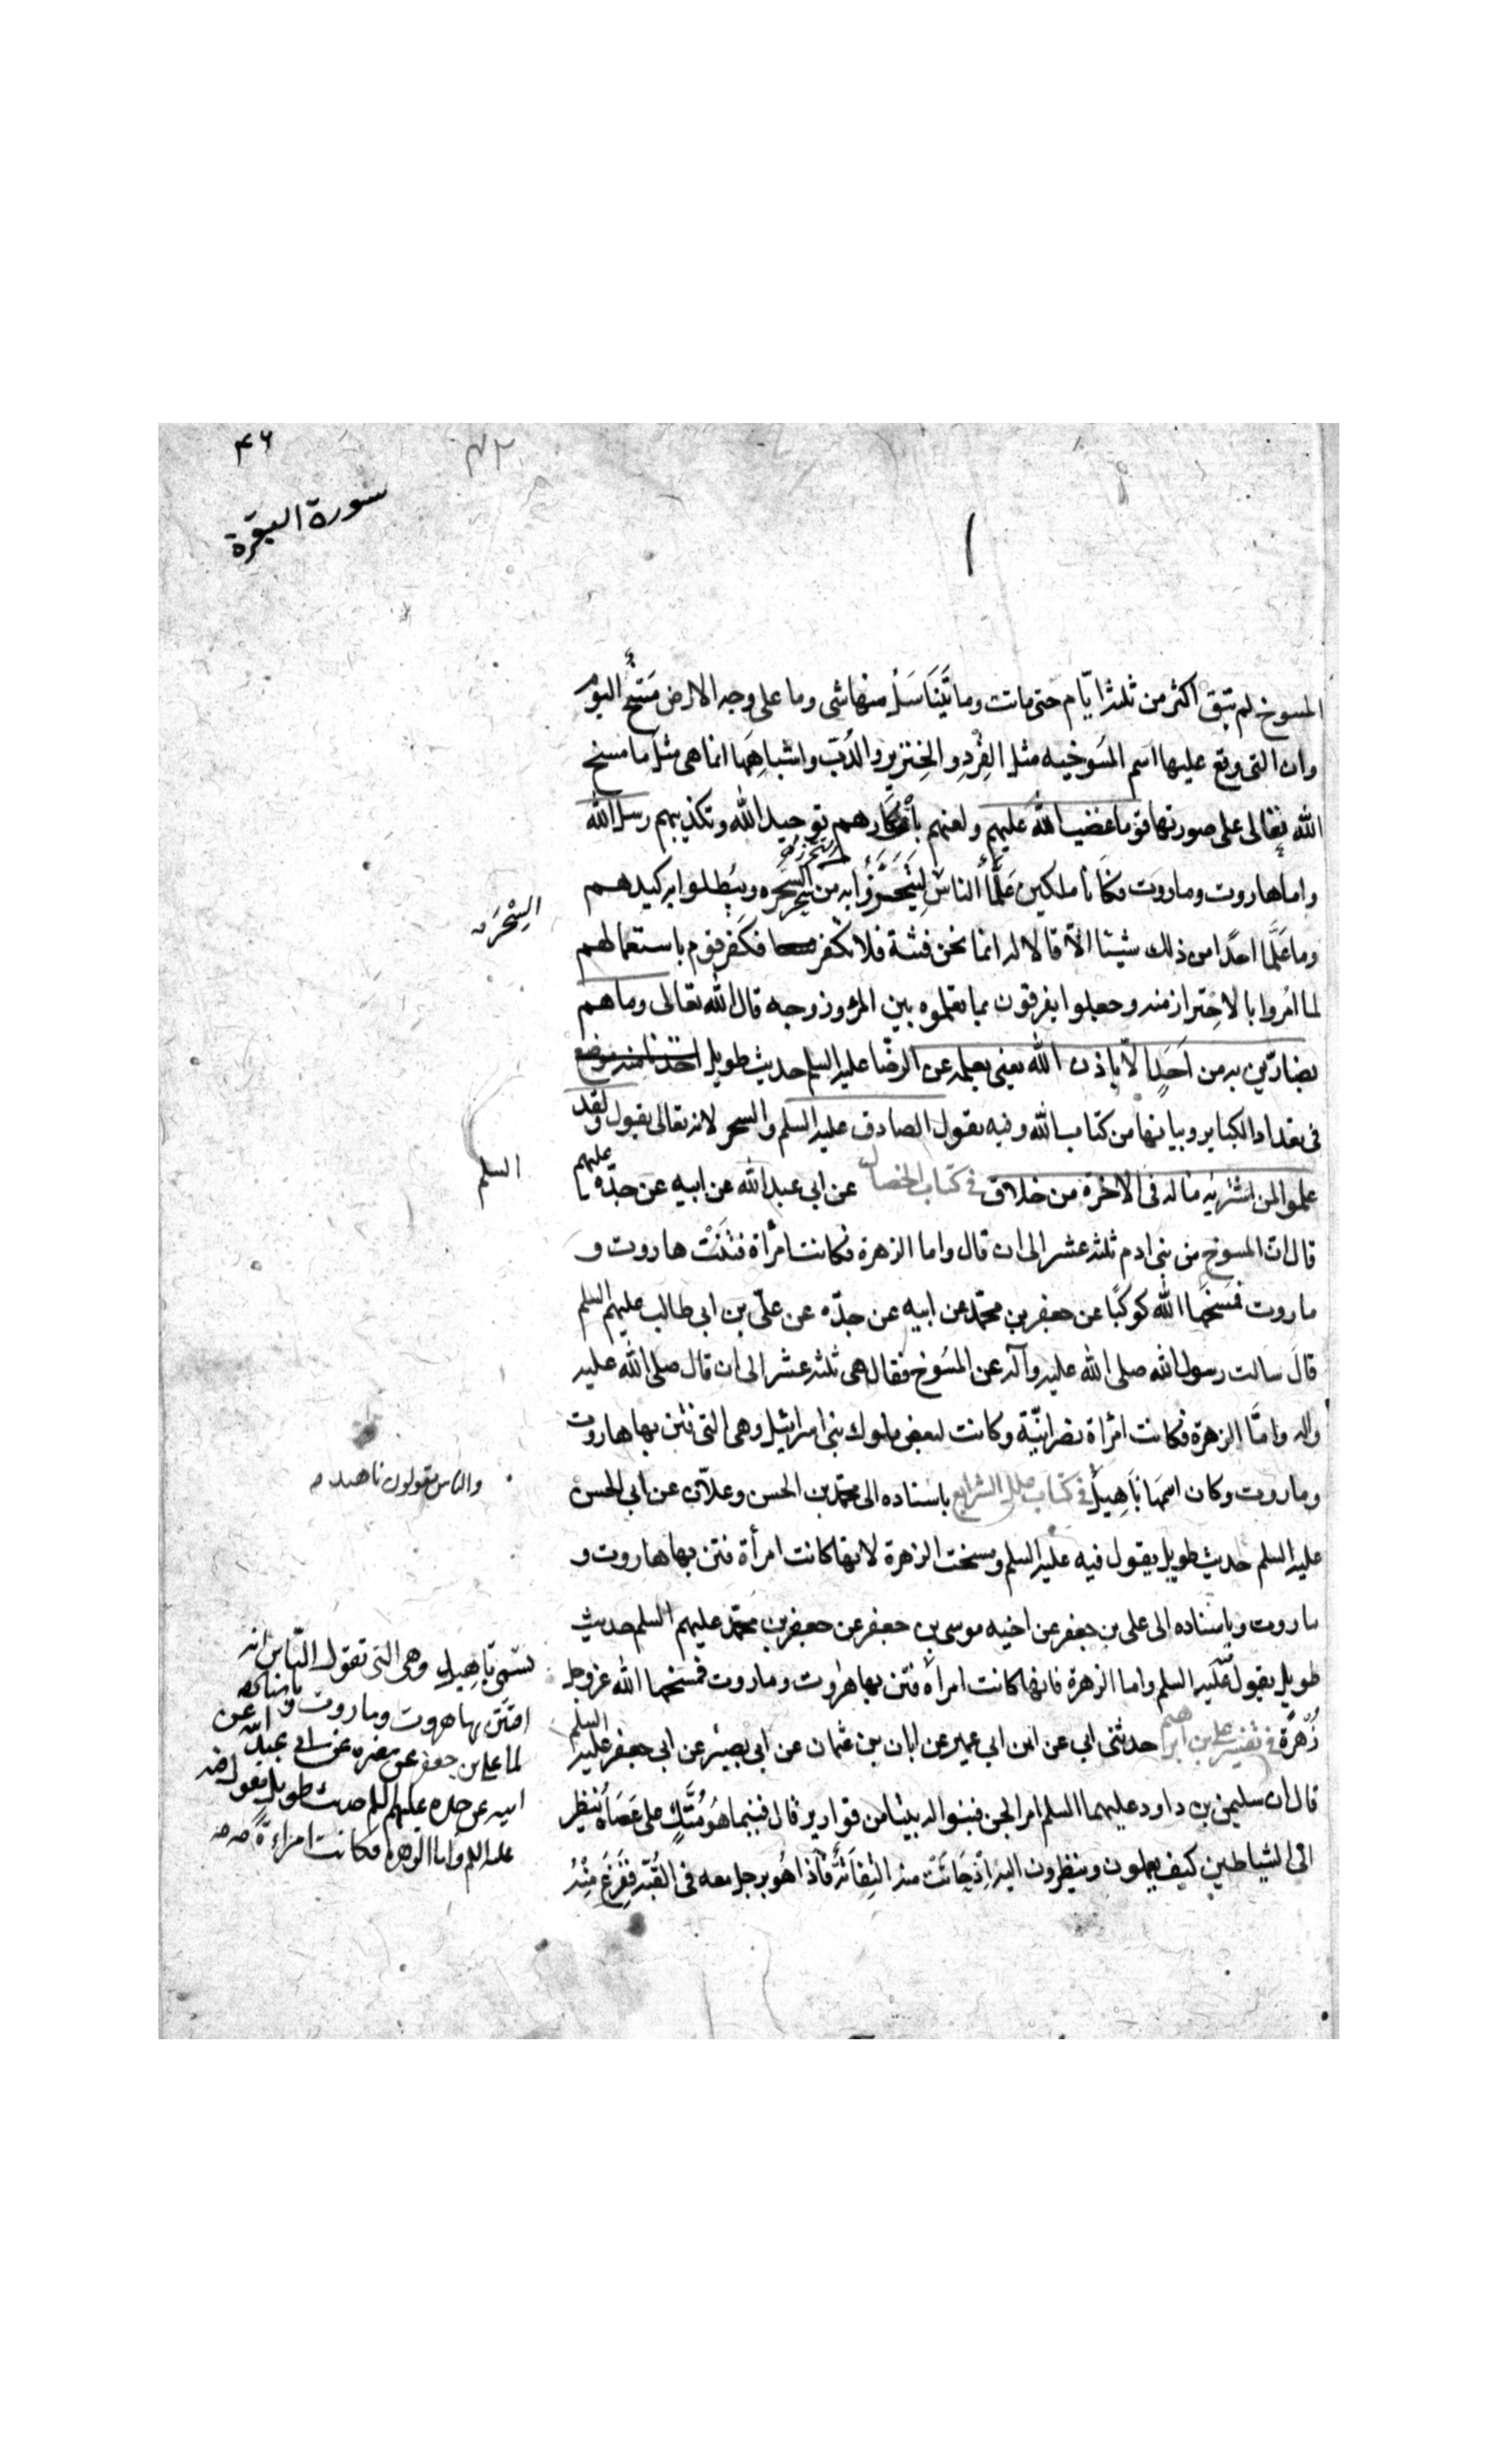 ۴۶
۴۲
سورة البقرة
المسوخ لم تبق اكثر من ثلثة ايّام حتى ماتت وما تَنَاسَلَ منها شى وما على وجه الارض مَسْخٌ اليوم
وان التى وقع عليها اسم المَسُوخيه مثل القِرْدِ و الخِنزيرِ والدُبّ واشباهِهَا انما هى مثل ما مسخ
الله تعالى على صورتها قوما غضب الله عليهم ولعنهم بانكارهم توحيد الله وتكذيبهم رسل الله
واما هاروت وماروت فكانا ملكين عَلَّمَا الناسَ لِيَتَحَرَّزُوا به من سحر السحره ويُبْطلوا به كيدهم
السِحْرَ
وما عَلَّمَا احدًا من ذلك شيئا الّا قالا له انما نحن فتنة فلا تكفر فكفر قوم باستعمالهم
لما امروا بالاحتراز منه وجعلوا يفرقون بما تعلموه بين المرء وزوجه قال الله تعالى وما هم
بضارّين به من اَحَدٍ الّا باذن الله يعنى بعلمه عن الرضا عليه السلم حديث طويل اخذنا منه موضع
فى تعداد الكباير وبيانها من كتاب الله وفيه يقول الصادق عليه السلم والسحر لانه تعالى يقول ولقد
علموا لمن اشتريه ما له فى الاخرة من خلاق فى كتاب الخصال عن ابى عبدالله عن ابيه عن جدّه عليهم
السلم
قال ان المسوخ من بنى ادم ثلثه عشر الى ان قال واما الزهرة فكانت امرأة فتنت هاروت و
ماروت فمسخها الله كوكبًا عن جعفر بن محمّد عن ابيه عن جدّه عن علىّ بن ابى طالب عليهم السلم
قال سالت رسول الله صلى الله عليه وآله عن المسُوخ فقال هى ثلثه عشر الى ان قال صلى الله عليه
واله وامّا الزهرة فكانت امرُأة نصرانيّة وكانت لبعض ملوك بنى اسرائيل وهى التى فتن بها هاروت
وماروت وكان اسمها ناهيل فى كتاب علل الشرايع باسناده الى محمّد بن الحسن وعلّان عن ابى الحسن
والناس يقولون ناهيد
عليه السلم حديث طويل يقول فيه عليه السلم ومسخت الزهرة لانها كانت امرأة فتن بها هاروت و
ماروت وباسناده الى على بن جعفر عن اخيه موسى بن جعفر عن جعفر بن محمّد عليهم السلم حديث
طويل يقول فيه عليه السلم واما الزهرة فانها كانت امراة فتن بها هاروت وماروت فمسخها الله عز وجل
زُهْرَة فى تفسير على بن ابراهيم حدثنى ابى عن ابن ابى عمير عن ابان بن عثمان عن ابى بصير عن ابى جعفر عليه السلم
قال ان سليمن بن داود عليهما السلم امر الجن فبنوا له بيتا من قوارير قال فبينما هُوَ مُتَّكٍ على عَصَاه يَنظر
الى الشياطين كيف يعملون وينظرون اليه اِذ حَانَتْ منه التِفَاتَةٌ فاذا هُو برجل معه فى القُبّه فَفَزِعَ مِنْهُ
تسمّى ناهيل وهى التى تقول النّاس انه
افتتن بها هروت وماروت وباسناده
الى على بن جعفر عن مغيره عن ابى عبدالله عن
ابيه عن جده عليهم السلم حديث طويل يقول فيه
عليه السلم واما الزهرة فكانت امراءةً